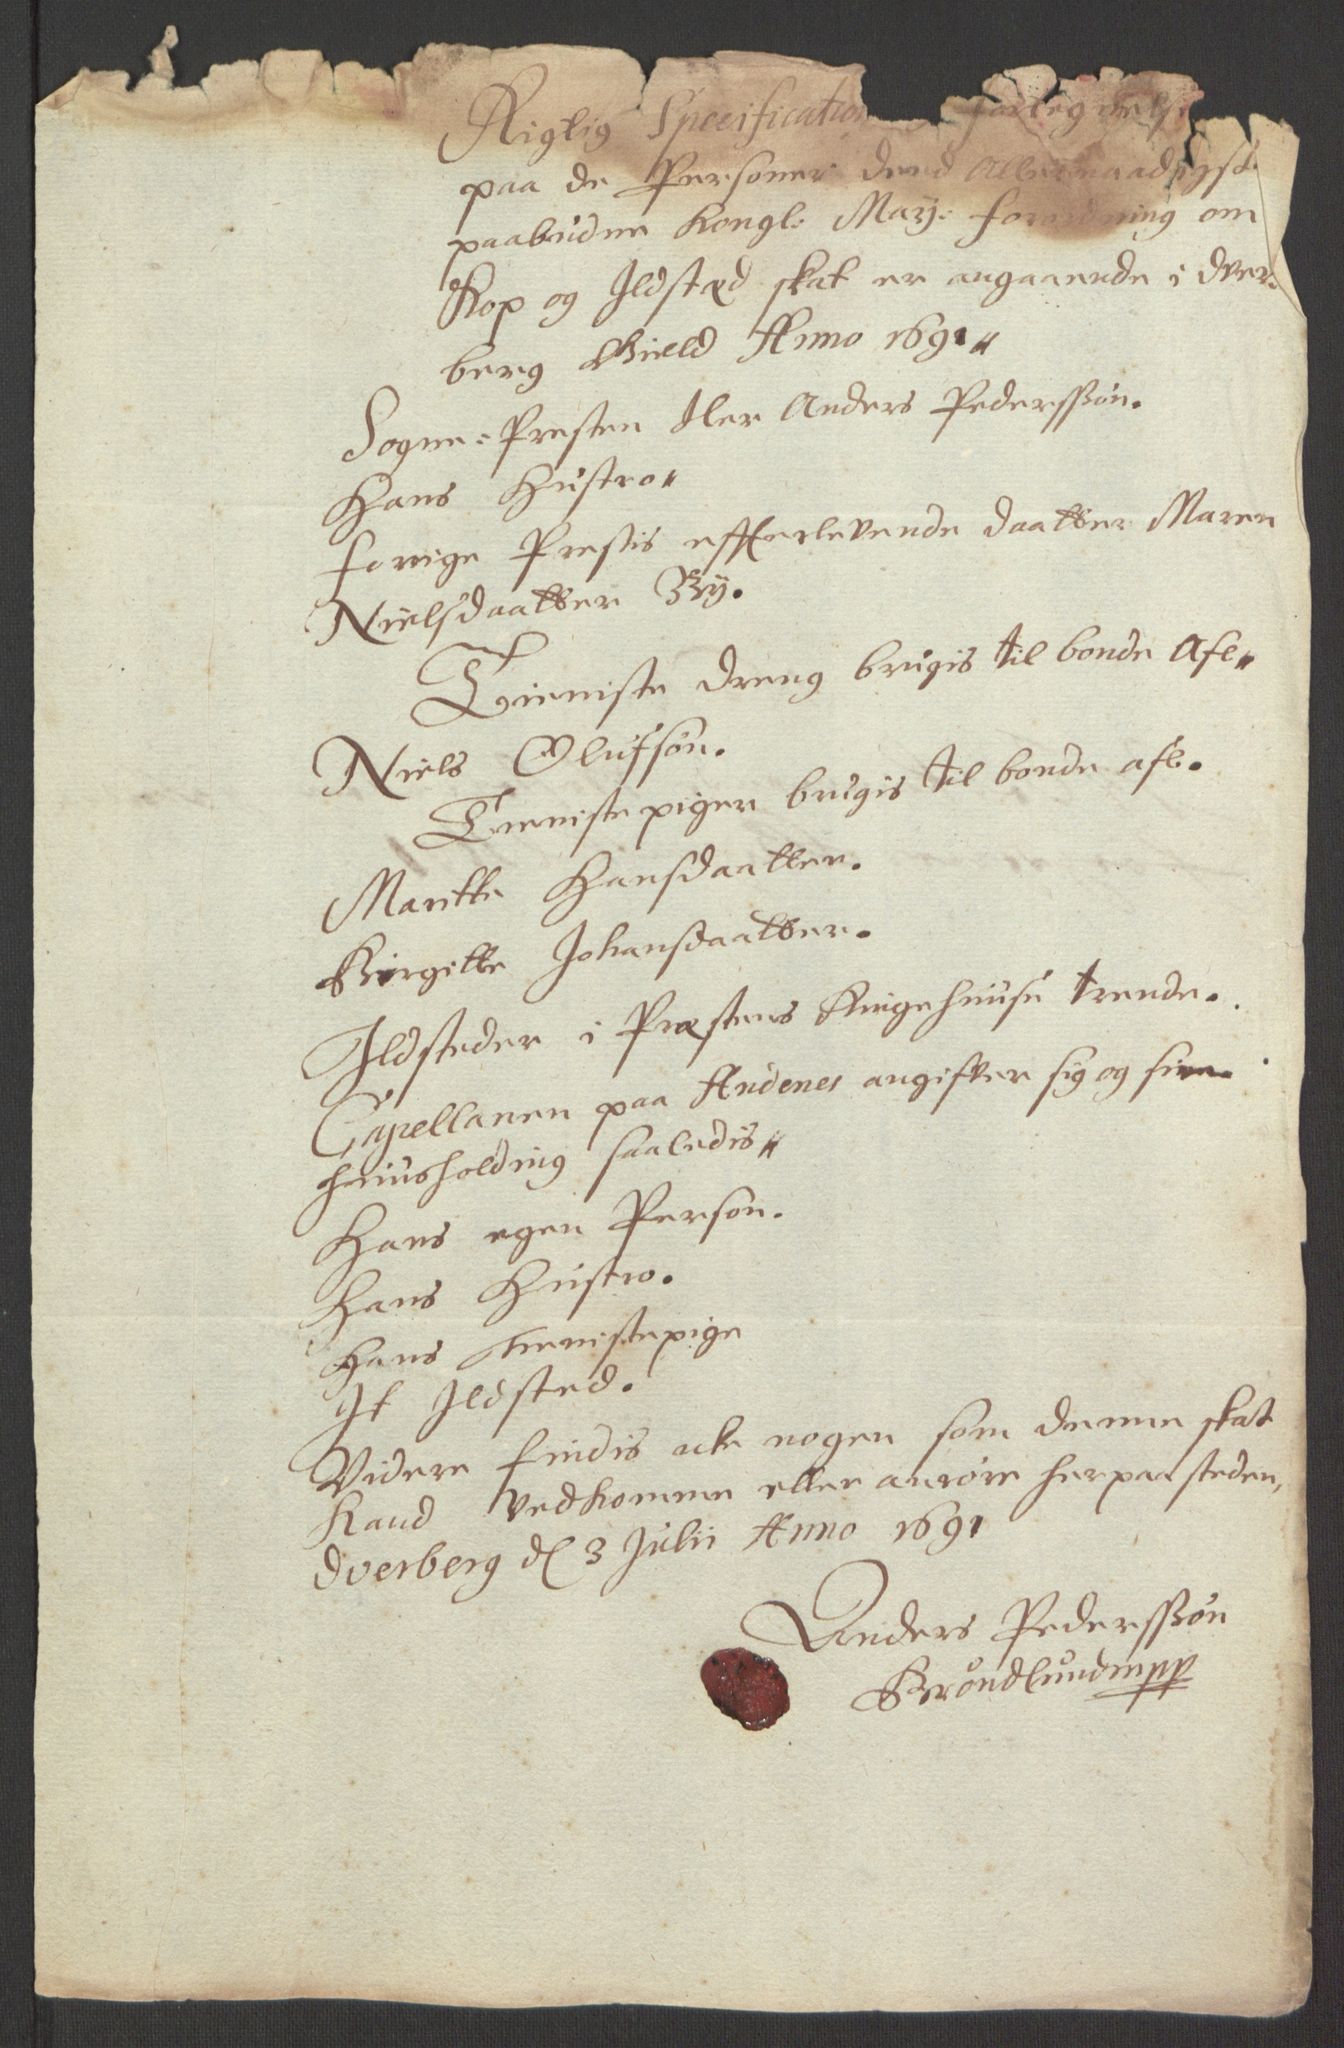 Rigtig Specification forteignelse
paa de Personer dend Allernaadigst
paabudne Kongl: May: forordning om
Kop og Ildsted skat er angaaende i Dver¬
berg Gield Anno 1691
Sogne-Presten Her Anders Pederssøn.
Hans Hustro
forrige Prestis effterlevende daatter Maren
Nielsdaatter By.
Tieniste dreng brugis til bonde Afl
Niels Olufsøn.
Tieniste piger brugis til bonde afl.
Maritte Hansdaatter.
Birgitte Johansdaatter.
Ildsteder i Præstens Ringe huuse trende.
Capellanen paa Andenes angifver sig og sin
huusholding saaledis
Hans egen Person.
Hans Hustro.
Hans tienistepige
It Ildsted.
Videre findis icke nogen som denne skat
Kand vedkomme eller anrøre her paa steden,
Dverberg d 3 Julii Anno 1691
Anders Pederssøn
Brøndlund mpp